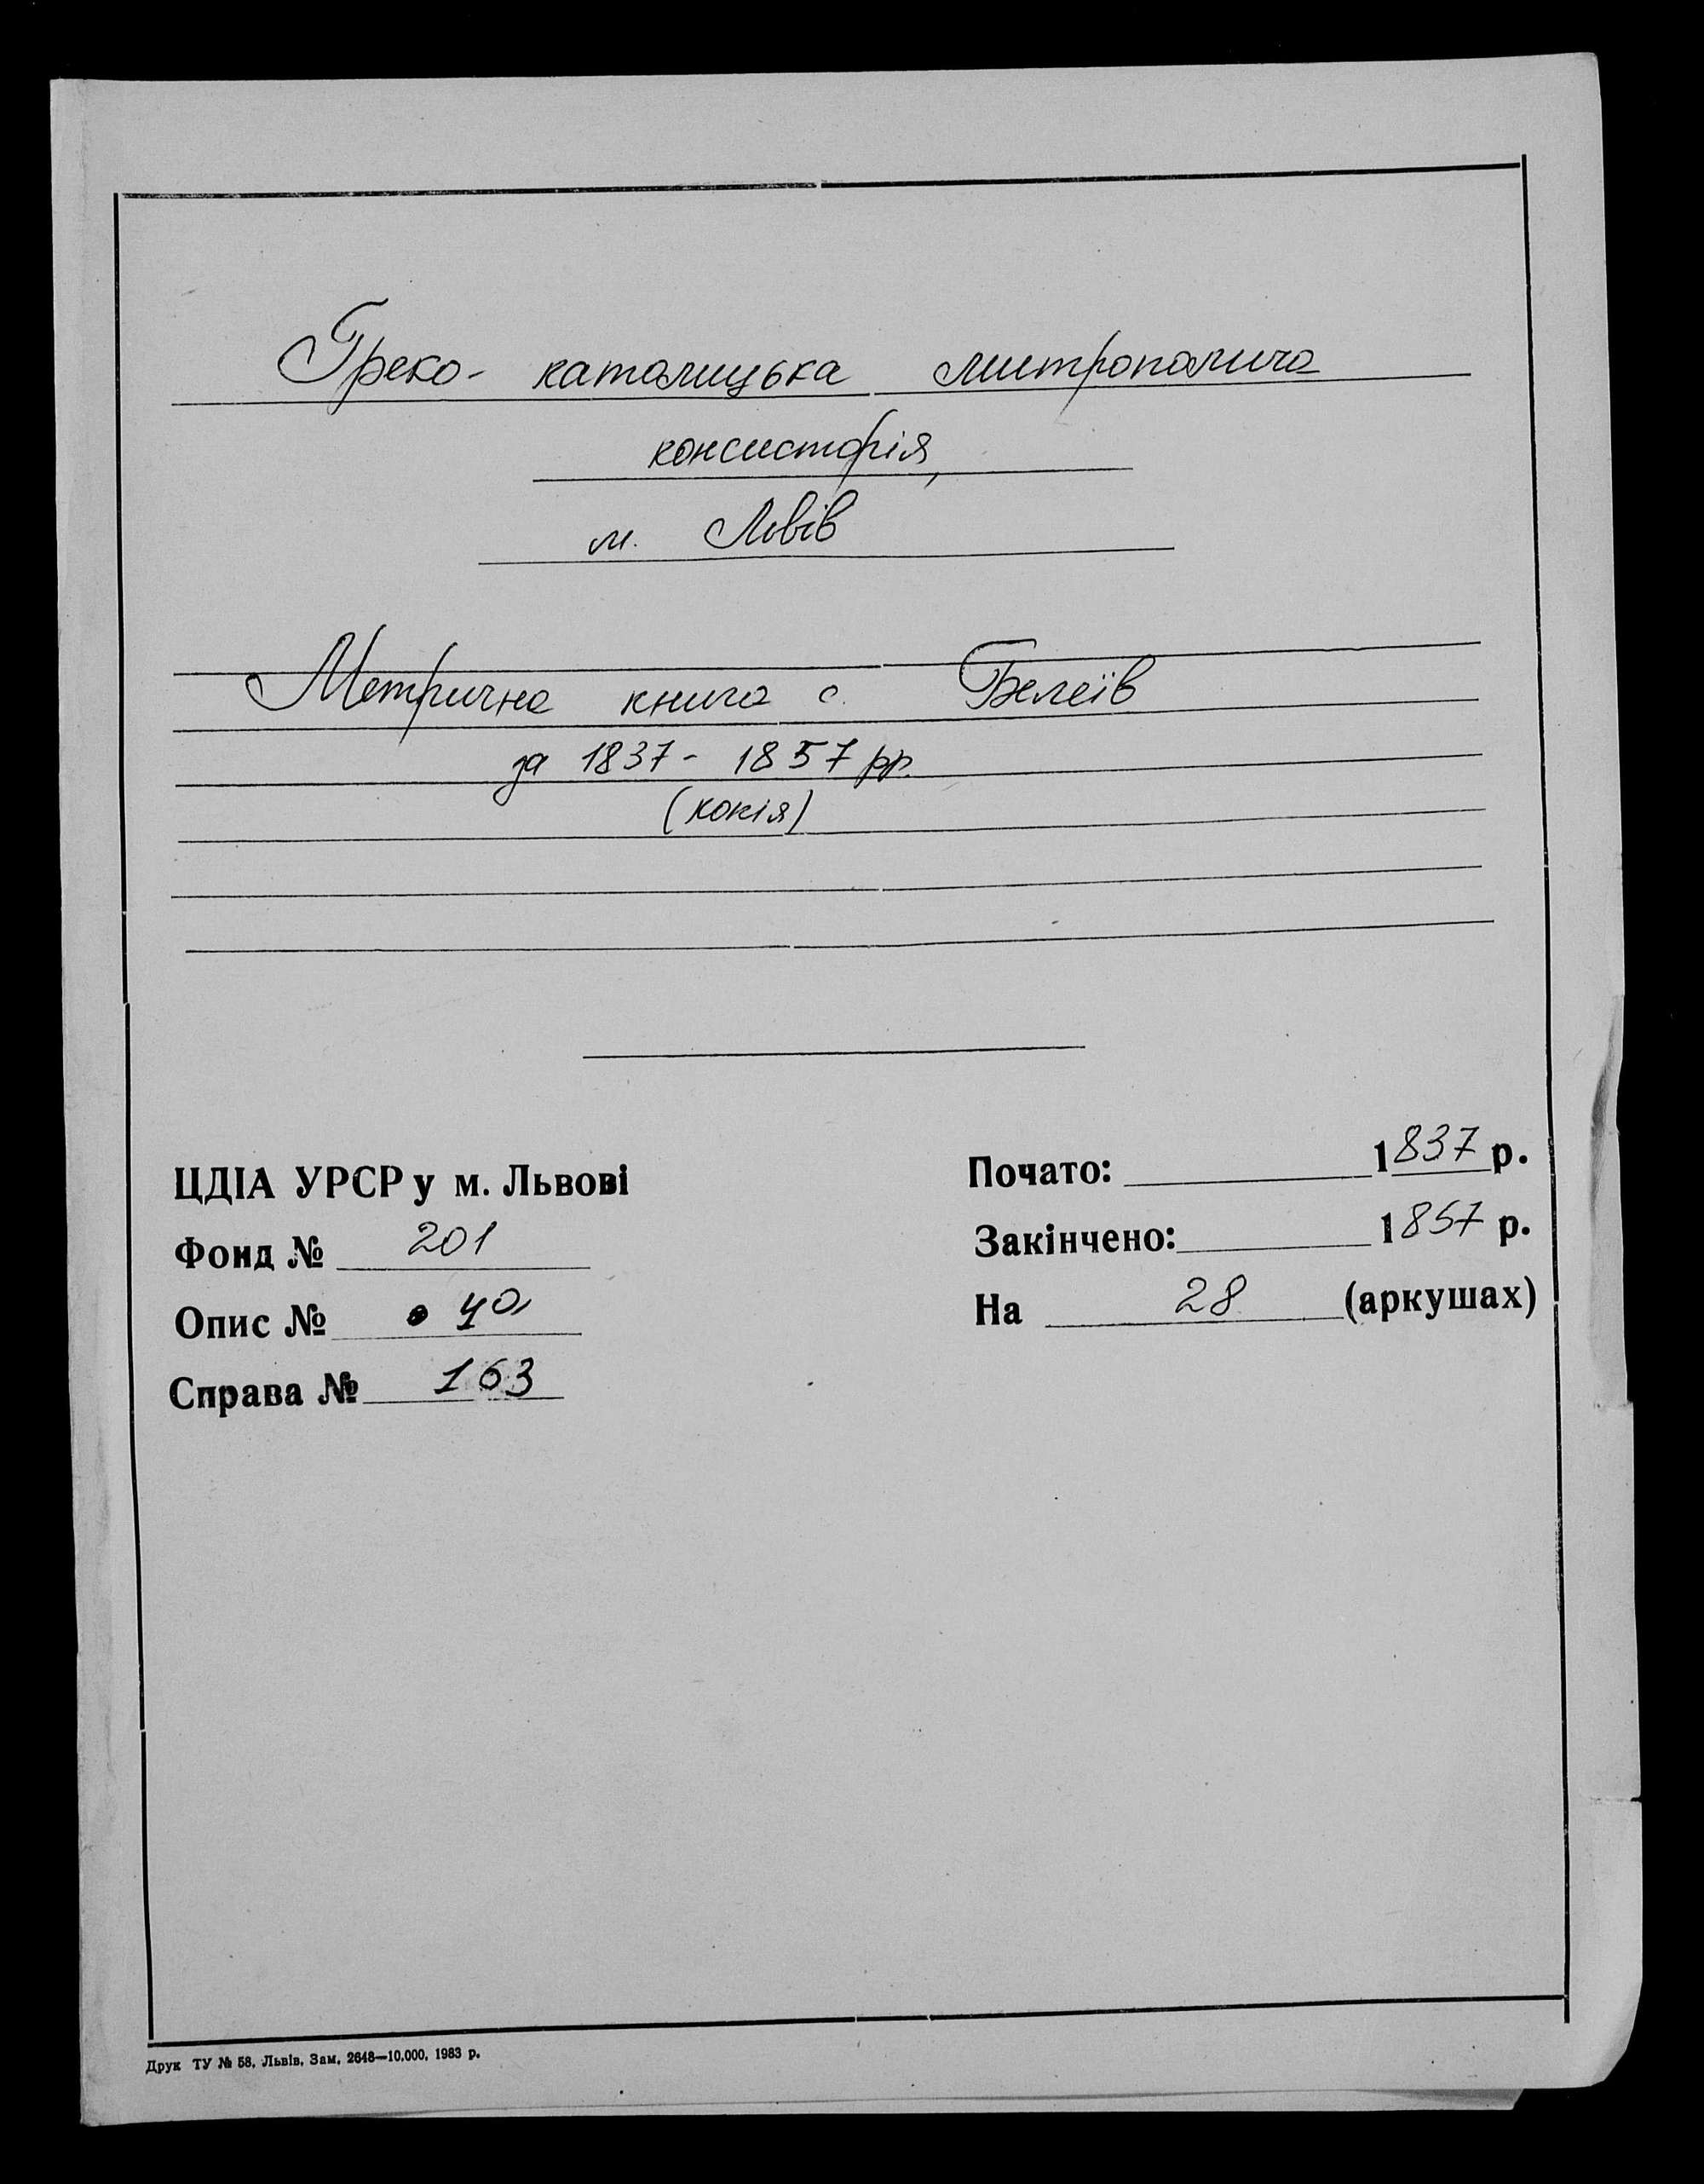 Греко- католицька митрополича
консисторія,
м. Львів
Метрична книга с. Белеїв
за 1837- 1857 рр.
(копія)
ЦДІА УРСР у м. Львові
Фонд № 201
Опис № 4а
Справа № 163
Почато: 1837 р.
Закінчено: 1857 р.
На 28 (аркушах)
Друк ТУ № 58, Львів, Зам, 2648—10.000, 1983 р.